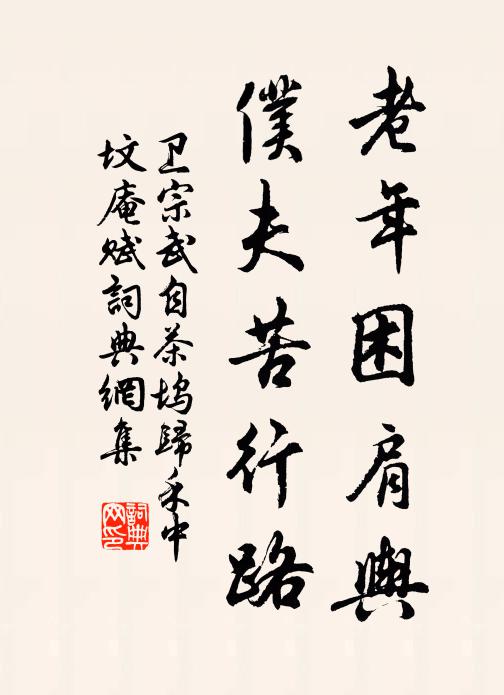 老年困肩輿
僕夫苦行路
卫宗武自茶坞歸禾中
坟庵赋詞典網集
詞典
网印